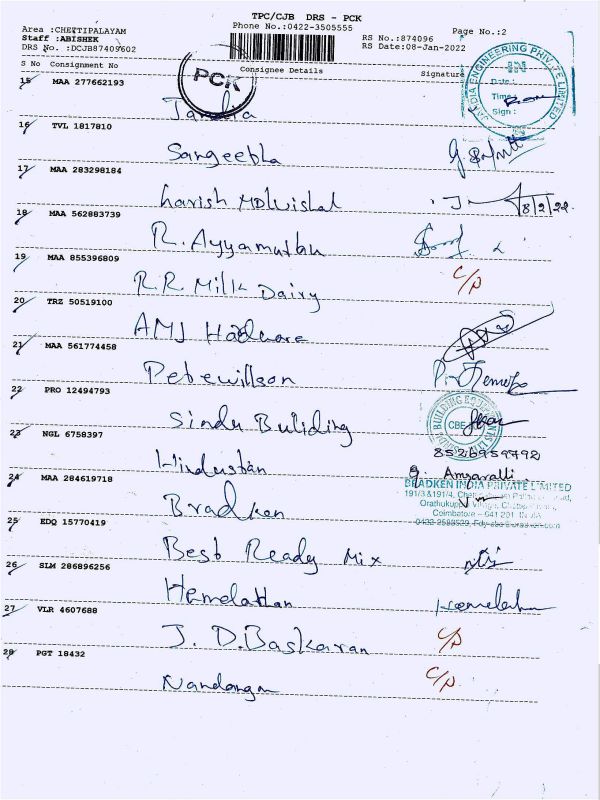 TPC/CJB DRS - PCK
Area :CHETTIPALAYAM Phone No.:0422-3505555 Page No.:2
Staff :ABISHEK RS No.:874096
DRS No. :DCJB87409602 RS Date:08-Jan-2022
S No Consignment No Consignee Details Signature
PCK
ENGINEERING PRIVATE LIMITED
Date :
Time :
Sign :
15 MAA 277662193
16 TVL 1817810
Sangeetha
17 MAA 283298184
Harish
8/2/22
18 MAA 562883739
R. Ayyamuthu
19 MAA 855396809
R.R. Milk Dairy C/P
20 TRZ 50519100
AMJ Hadware
21 MAA 561774458
Petewillson
22 PRO 12494793
Sindu Buliding
BUILDING
CBE
23 NGL 6758397 8526959792
Hindustan
24 MAA 284619718
BRADKEN INDIA PRIVATE LIMITED
191/3 &191/4,
Coimbatore - 641 201
Bradken
25 EDQ 15770419
Best Ready Mix
26 SLM 286896256
27 VLR 4607688
J. D. Baskaran C/P
28 PGT 18432
C/P